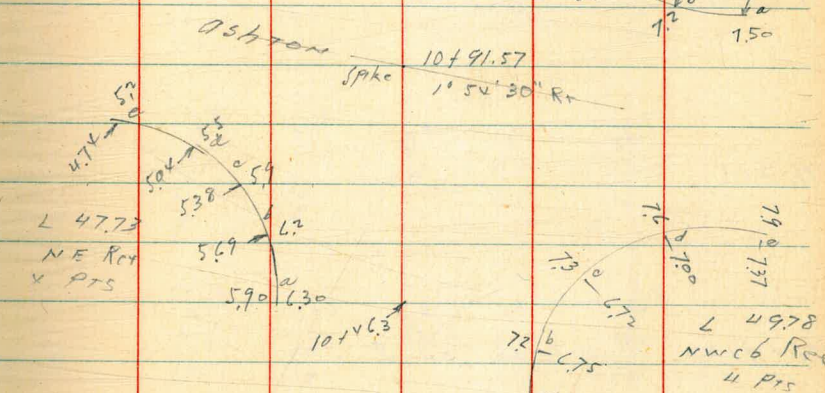 a
7.2
7.50
ashton
Spike 10+91.57
1° 54' 30" Rt
5.2
e
4.74
5.5
d
5.04
c 5.9
5.38
b 6.2
5.69
a
5.90 6.30
L 47.73
N E Ret
4 PTS
10+46.3
7.9
e
7.37
7.6
d
7.00
7.3
c
6.72
7.2 b
6.75
L 49.78
NWcb Re
4 Pts